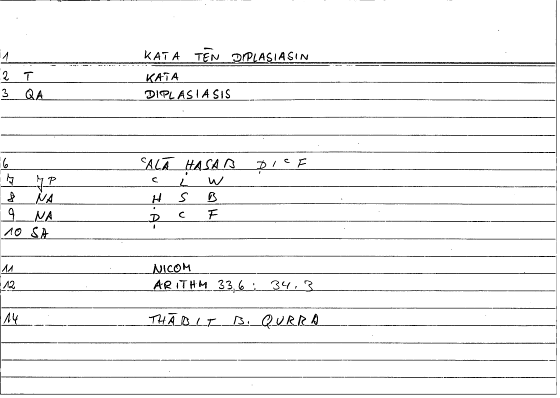 1 KATA TĒN DIPLASIASIN
2 T KATA
3 QA DIPLASIASIS
6 ʿALĀ ḤASAB ḌIʿF
7 YP ʿ L W
8 NA Ḥ S B
9 NA Ḍ ʿ F
10 SA
11 NICOM
12 ARITHM 33,6 : 34,3
14 THĀBIT B. QURRA